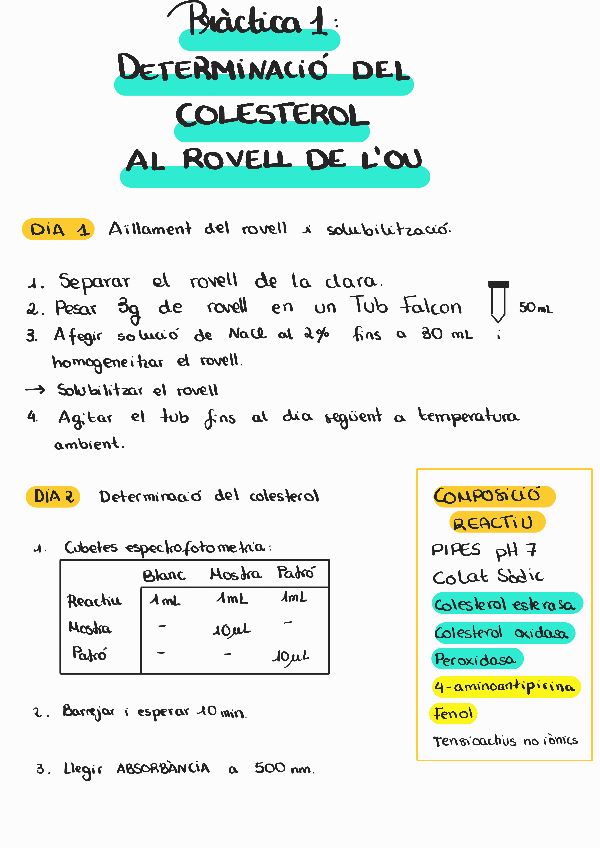 Pràctica 1:
DETERMINACIÓ DEL
COLESTEROL
AL ROVELL DE L'OU
DIA 1 Aïllament del rovell i solubilització.
1. Separar el rovell de la clara.
2. Pesar 3g de rovell en un Tub Falcon
50 mL
3. Afegir solució de NaCl al 2% fins a 30 mL i
homogeneïtzar el rovell.
→ Solubilitzar el rovell
4. Agitar el tub fins al dia següent a temperatura
ambient.
DIA 2 Determinació del colesterol
1. Cubetes espectrofotometria:
Blanc Mostra Patró
Reactiu 1mL 1mL 1mL
Mostra - 10µL -
Patró - - 10µL
2. Barrejar i esperar 10 min.
3. Llegir ABSORBÀNCIA a 500 nm.
COMPOSICIÓ
REACTIU
PIPES pH 7
Colat Sòdic
Colesterol esterasa
Colesterol oxidasa
Peroxidasa
4-aminoantipirina
Fenol
Tensioactius no iònics